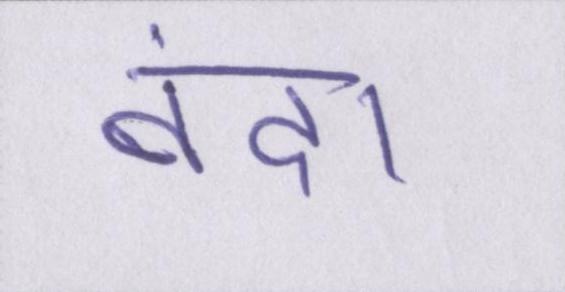 बंदा